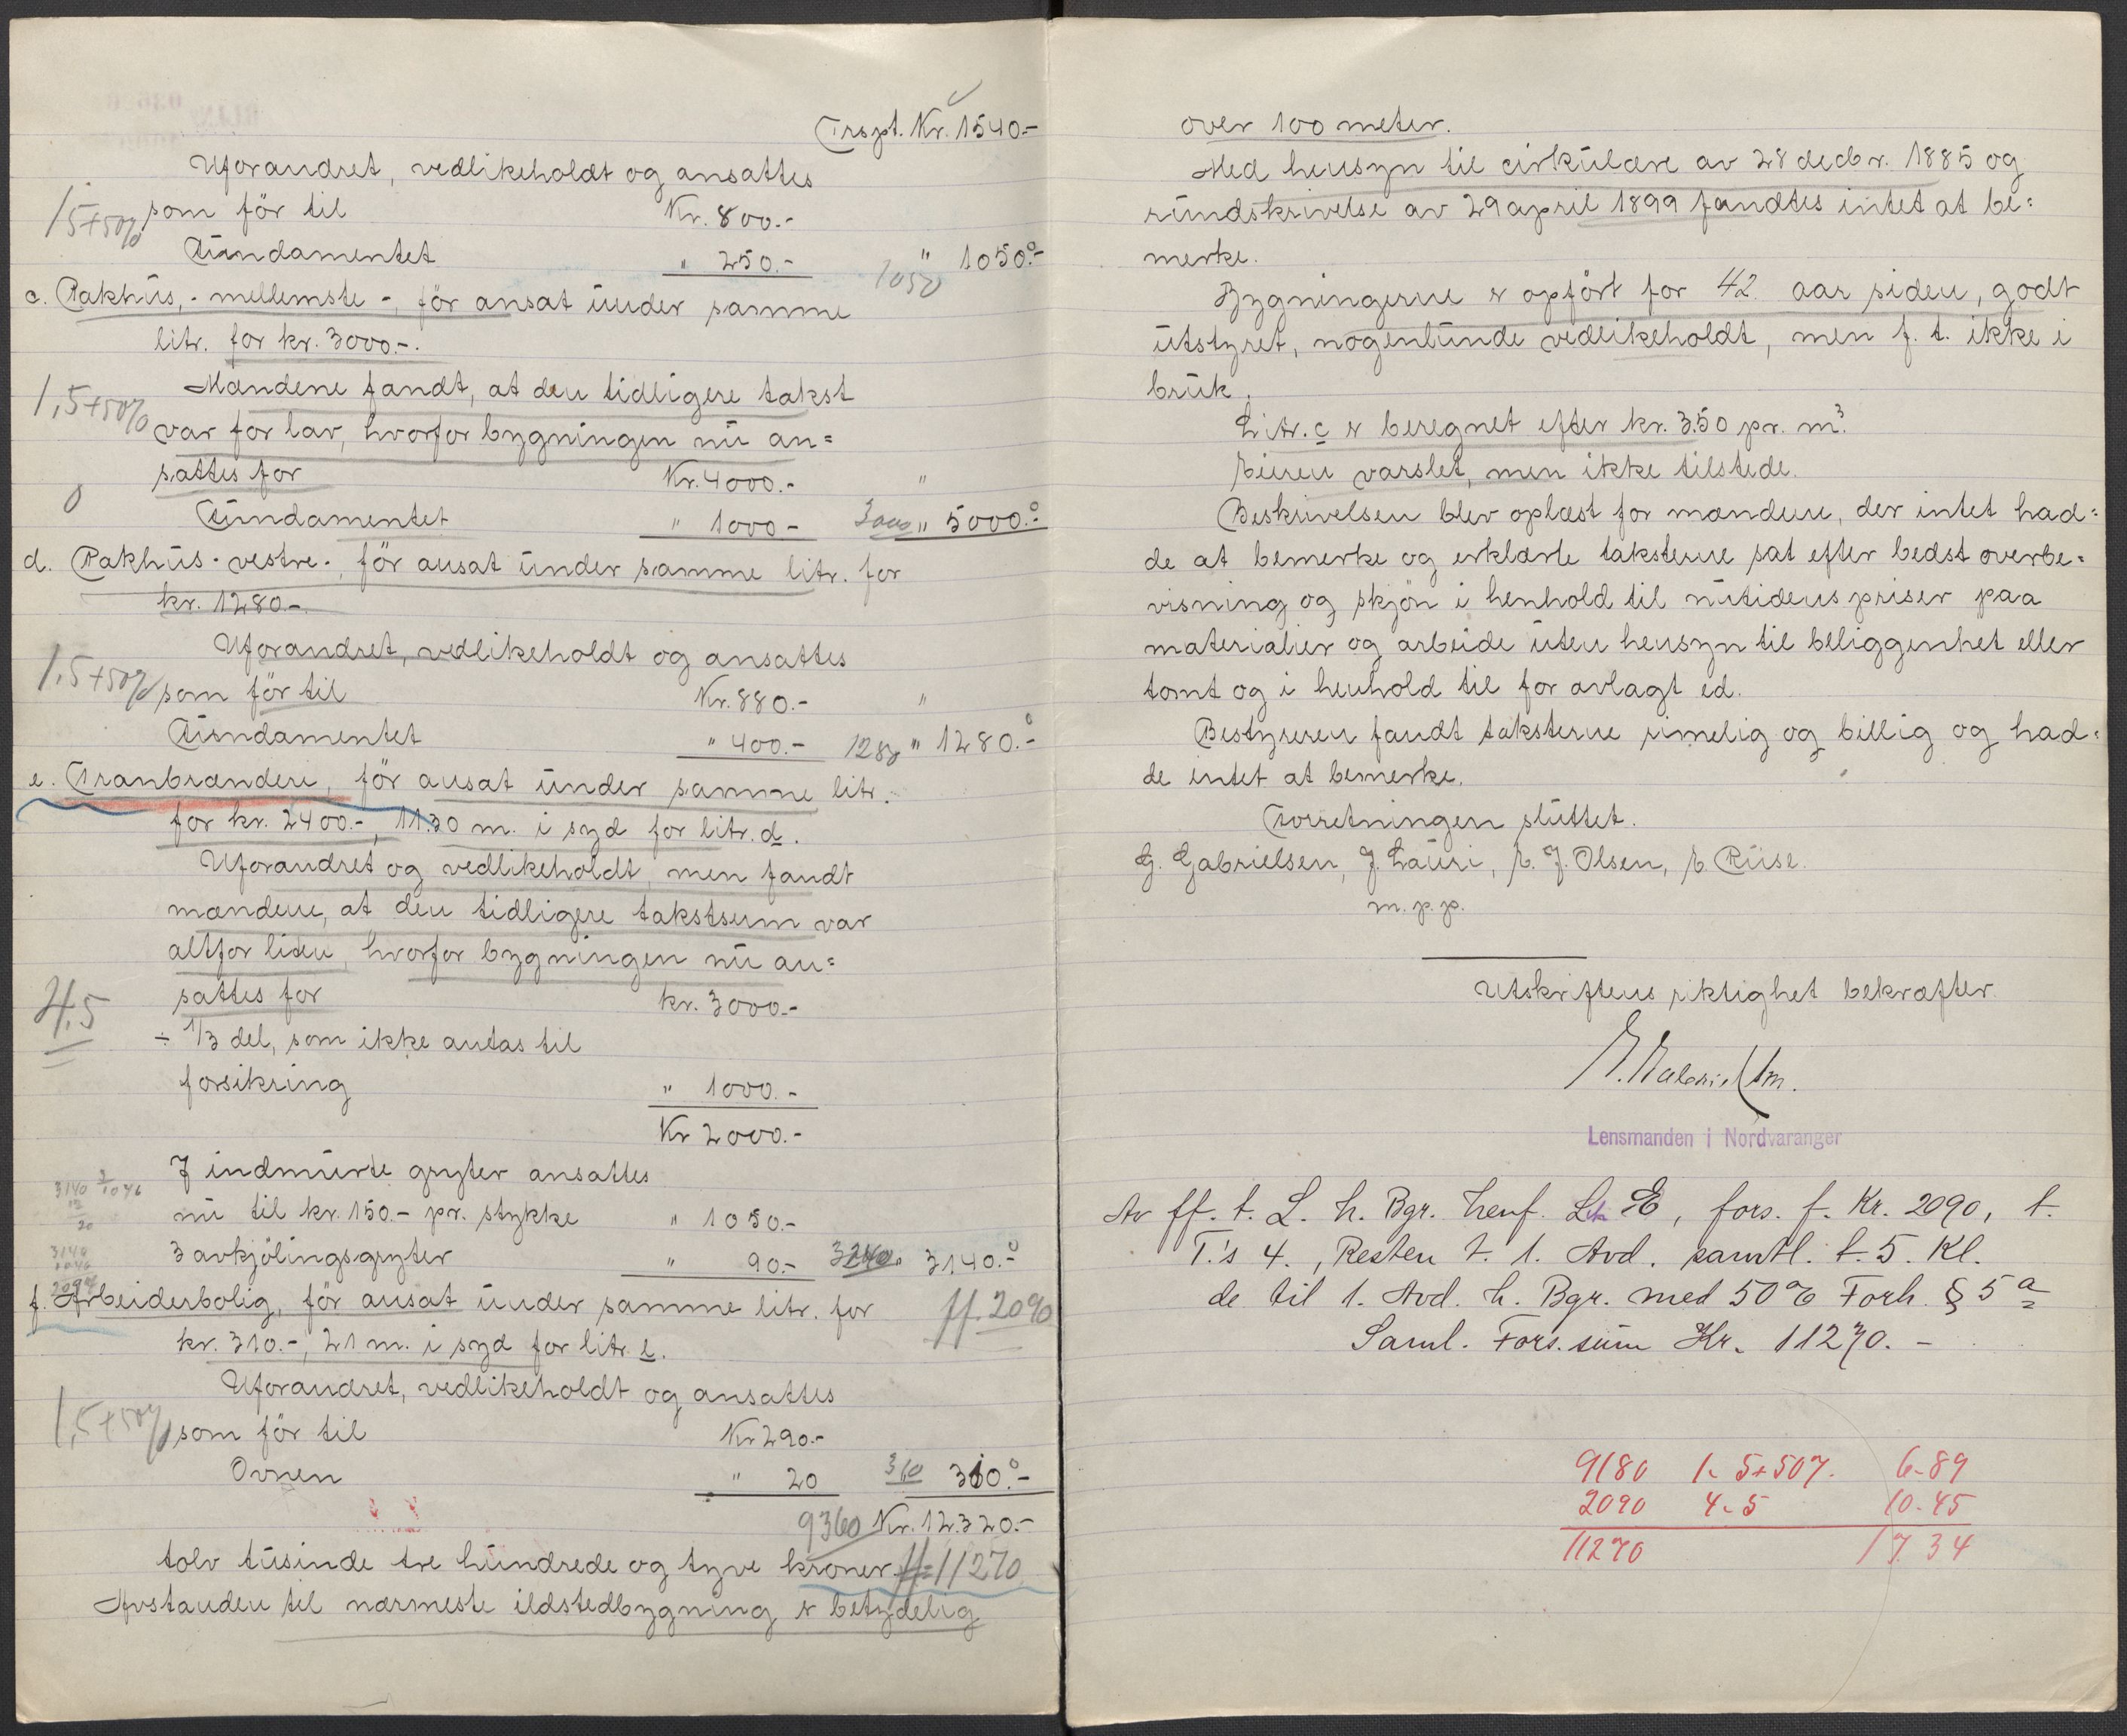 Trspt. Kr. 1540.-
Uforandret, vedlikeholdt og ansattes
1,5+50% som för til Kr. 800.-
Fundamentet " 250.- 1050 " 1050.-
c. Pakhus, - mellemste -, för ansat under samme
litr. for kr. 3000.-.
Mændene fandt, at den tidligere takst
1,5+50% var for lav, hvorfor bygningen nu an=
sattes for Kr. 4000.- "
0 Fundamentet " 1000 - 3000 " 5000.-
d. Pakhus - vestre -, för ansat under samme litr. for
kr. 1280.-
Uforandret, vedlikeholdt og ansattes
1,5+50% som för til Kr. 880.- "
Fundamentet " 400.- 1280 " 1280.-
e. Tranbrænderi, för ansat under samme litr.
for kr. 2400.-, 11.30 m. i syd for litr. d.
Uforandret og vedlikeholdt, men fandt
mændene, at den tidligere takstsum var
altfor liden, hvorfor bygningen nu an=
4,5 sattes for kr. 3000.-
÷ 1/3 del, som ikke antas til
forsikring " 1000.-
Kr 2000.-
7 indmurte gryter ansattes
3140 3/1046
nu til kr. 150.- pr. stykke " 1050.-
3 avkjölingsgryter " 90.- 3140.-
3140
1046
2094
f. Arbeiderbolig, för ansat under samme litr. for ff. 2090
kr. 310.-, 21 m. i syd for litr. e.
Uforandret, vedlikeholdt og ansattes
1,5+50% som för til Kr 290.-
Ovnen " 20 310 310.-
9360 Kr. 12.320.-
tolv tusinde tre hundrede og tyve kroner ff = 11270
Avstanden til nærmeste ildstedbygning er betydelig
over 100 meter.
Med hensyn til cirkulære av 28 decbr. 1885 og
rundskrivelse av 29 april 1899 fandtes intet at be=
merke.
Bygningerne er opfört for 42 aar siden, godt
utstyret, nogenlunde vedlikeholdt, men f. t. ikke i
bruk.
Litr. c er beregnet efter kr. 3.50 pr. m³.
Eieren varslet, men ikke tilstede.
Beskrivelsen blev oplæst for mændene, der intet had=
de at bemerke og erklærte taksterne sat efter bedst overbe=
visning og skjön i henhold til nutidens priser paa
materialier og arbeide uten hensyn til beliggenhet eller
tomt og i henhold til for avlagt ed.
Bestyreren fandt taksterne rimelig og billig og had=
de intet at bemerke.
Forretningen sluttet.
G. Gabrielsen, J. Lauri, E. J. Olsen, E. Riise.
m. p. p.
Utskriftens riktighet bekræfter
Lensmanden i Nordvaranger
Av ff. t. L. h. Bgr. henf. Litr E, fors. f. Kr. 2090, t.
T.'s 4., Resten t. 1. Avd. samtl. t. 5. Kl.
de til 1. Avd. h. Bgr. med 50% Forh. § 5 a
Saml. Fors. sum Kr. 11270. -
9180 1.5+50%. 6-89
2090 4.5 10-45
11270 17.34